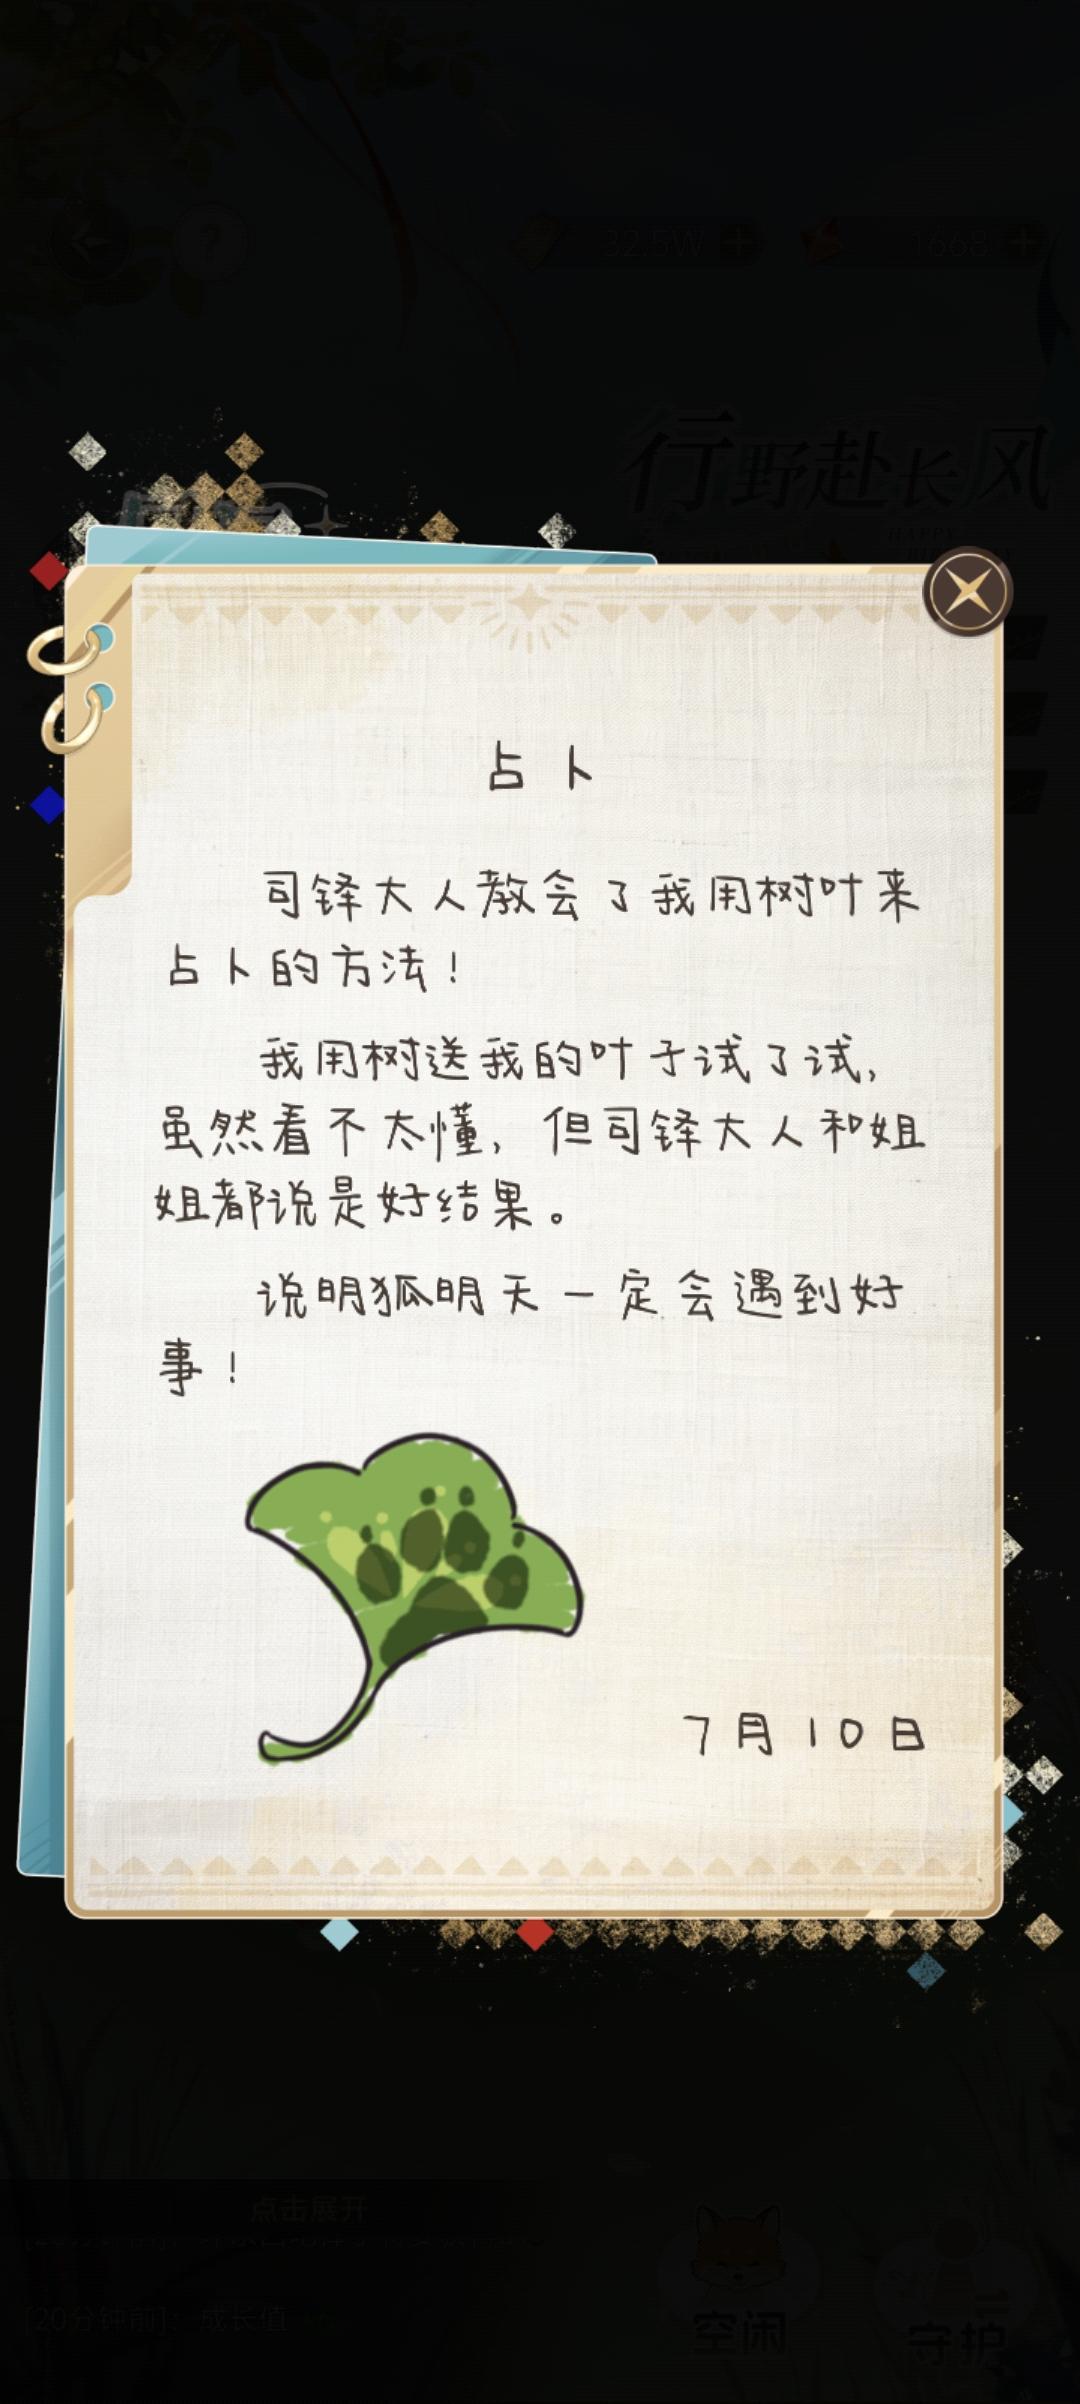 32.5W
1668
行野赴长风
HAPPY
占卜
司铎大人教会了我用树叶来
占卜的方法！
我用树送我的叶子试了试，
虽然看不太懂，但司铎大人和姐
姐都说是好结果。
说明狐明天一定会遇到好
事！
7月10日
点击展开
[20分钟前]：成长值
空闲
守护